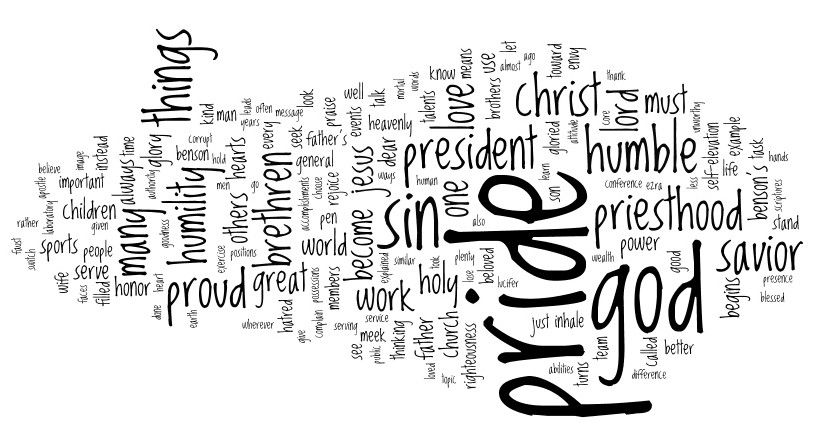 things
kind
man
leads
years
often
message
look
praise
well
events
talk
mortal
words
know
talents
means
love
brothers
use
almost
let
ago
christ
toward
envy
thank
core
lord
must
unworthy
corrupt
hold
benson
hearts
every
seek
father's
heavenly
dear
ways
president
gloried
attitude
humble
self-elevation
example
life
task
hands
believe
image
apostle
instead
important
always
time
glory
authority
humility
men
others
go
brethren
general
accomplishments
choose
rejoice
jesus
human
one
also
learn
son
conference
ezra
less
benson's
scriptures
rather
laboratory
children
given
many
goodness
exercise
positions
pen
world
become
sin
pride
priesthood
stand
faust
switch
sports
people
wife
serve
faces
filled
honor
done
heart
proud
earth
great
possessions
members
explained
similar
work
look
holy
plenty
lose
beloved
lucifer
wealth
power
god
good
savior
presence
blessed
begins
wherever
hatred
give
complain
serving
service
see
meek
public
thinking
father
loved
church
topic
righteousness
just
inhale
abilities
turns
team
called
better
difference